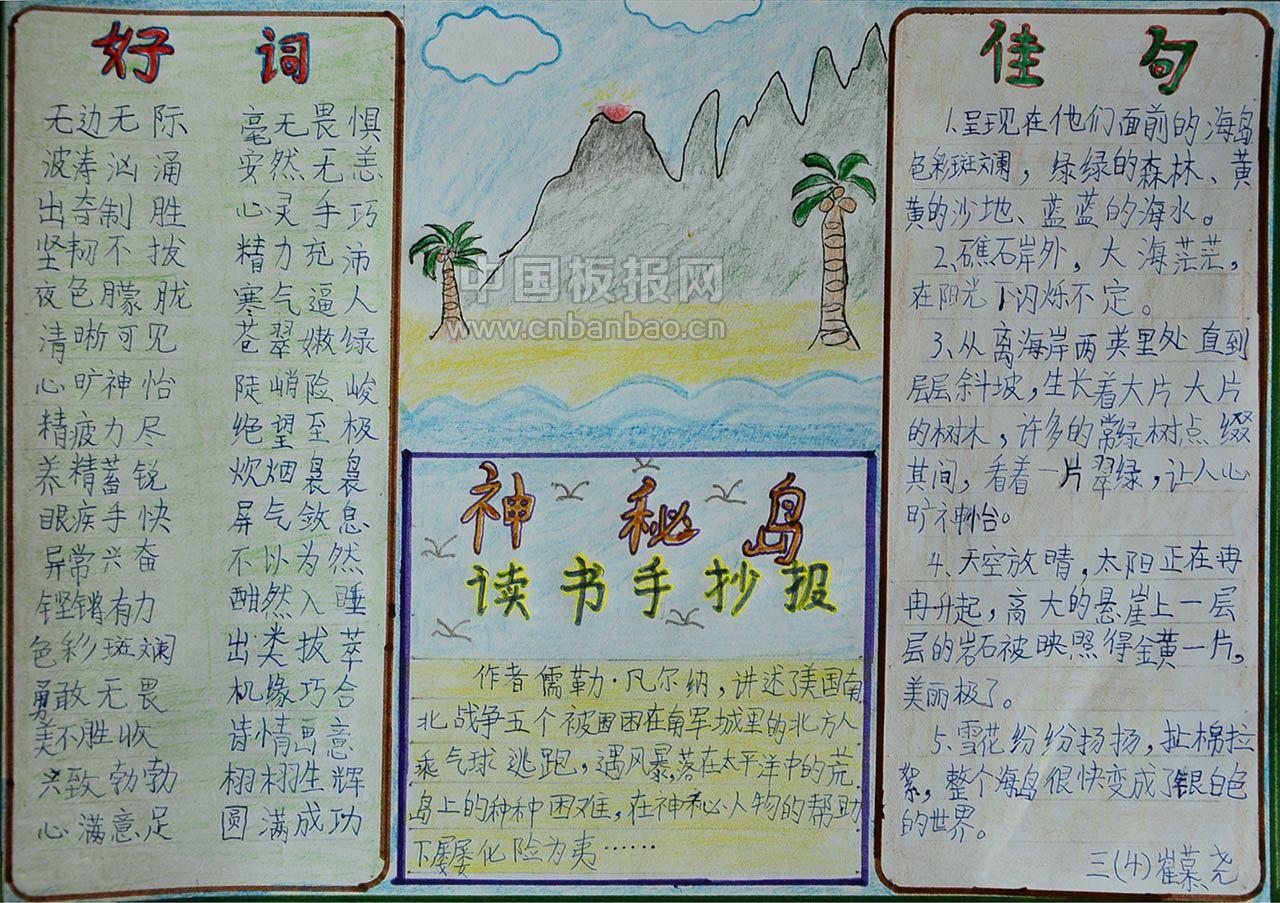 好词
无边无际 毫无畏惧
波涛汹涌 安然无恙
出奇制胜 心灵手巧
坚韧不拔 精力充沛
夜色朦胧 寒气逼人
清晰可见 苍翠嫩绿
心旷神怡 陡峭险峻
精疲力尽 绝望至极
养精蓄锐 炊烟袅袅
眼疾手快 屏气敛息
异常兴奋 不以为然
铿锵有力 酣然入睡
色彩斑斓 出类拔萃
勇敢无畏 机缘巧合
美不胜收 诗情画意
兴致勃勃 栩栩生辉
心满意足 圆满成功
中国板报网
www.cnbanbao.cn
神秘岛
读书手抄报
作者儒勒·凡尔纳，讲述了美国南
北战争五个被围困在南军城里的北方人
乘气球逃跑，遇风暴落在太平洋中的荒
岛上的种种困难，在神秘人物的帮助
下屡屡化险为夷……
佳句
1、呈现在他们面前的海岛
色彩斑斓，绿绿的森林、黄
黄的沙地、蓝蓝的海水。
2、礁石岸外，大海茫茫，
在阳光下闪烁不定。
3、从离海岸两英里处直到
层层斜坡，生长着大片大片
的树木，许多的常绿树点缀
其间，看着一片翠绿，让人心
旷神怡。
4、天空放晴，太阳正在冉
冉升起，高大的悬崖上一层
层的岩石被映照得金黄一片，
美丽极了。
5、雪花纷纷扬扬，扯棉拉
絮，整个海岛很快变成了银白色
的世界。
三(4)崔慕尧